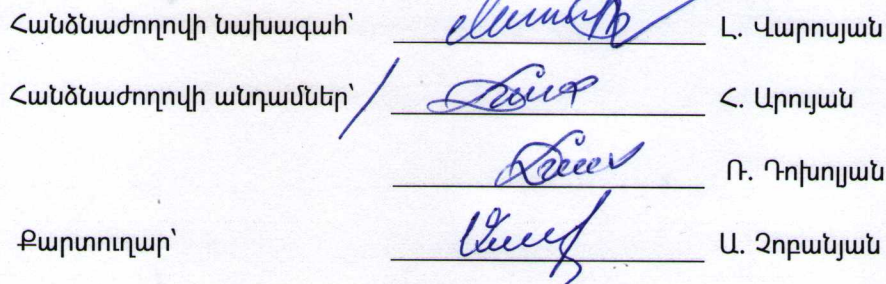 Հանձնաժողովի նախագահ՝ Լ. Վարոսյան
Հանձնաժողովի անդամներ՝ Հ. Արույան
Ռ. Դոխոլյան
Քարտուղար՝ Ա. Չոբանյան